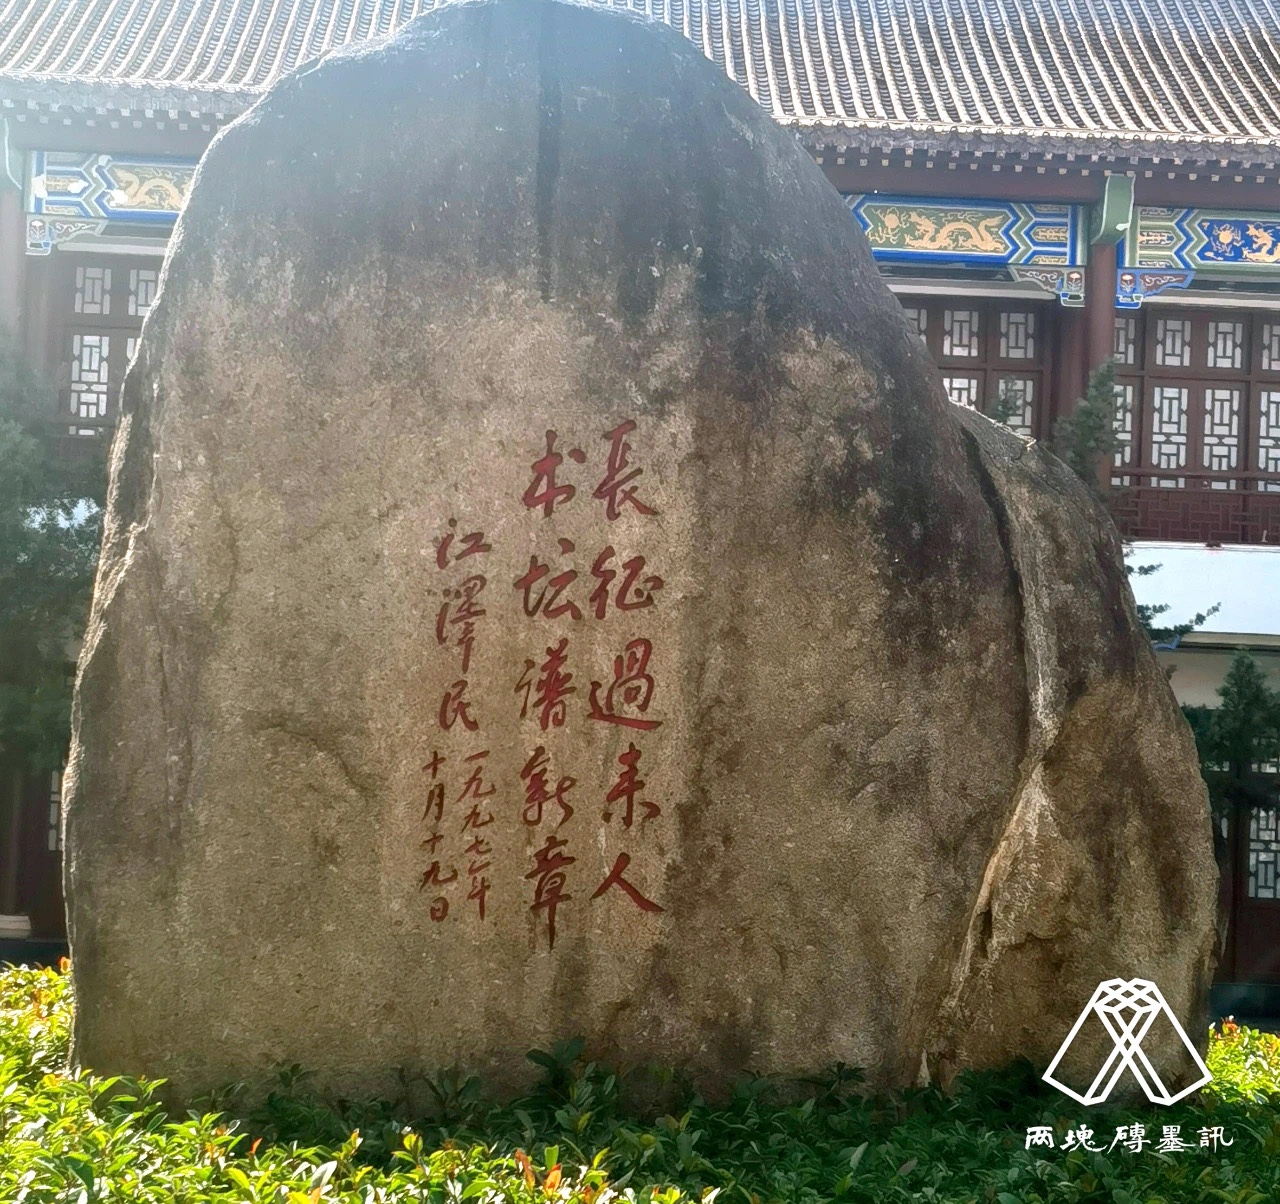 長征過来人
书坛谱新章
江澤民
一九九七年
十月十九日
两塊磚墨訊